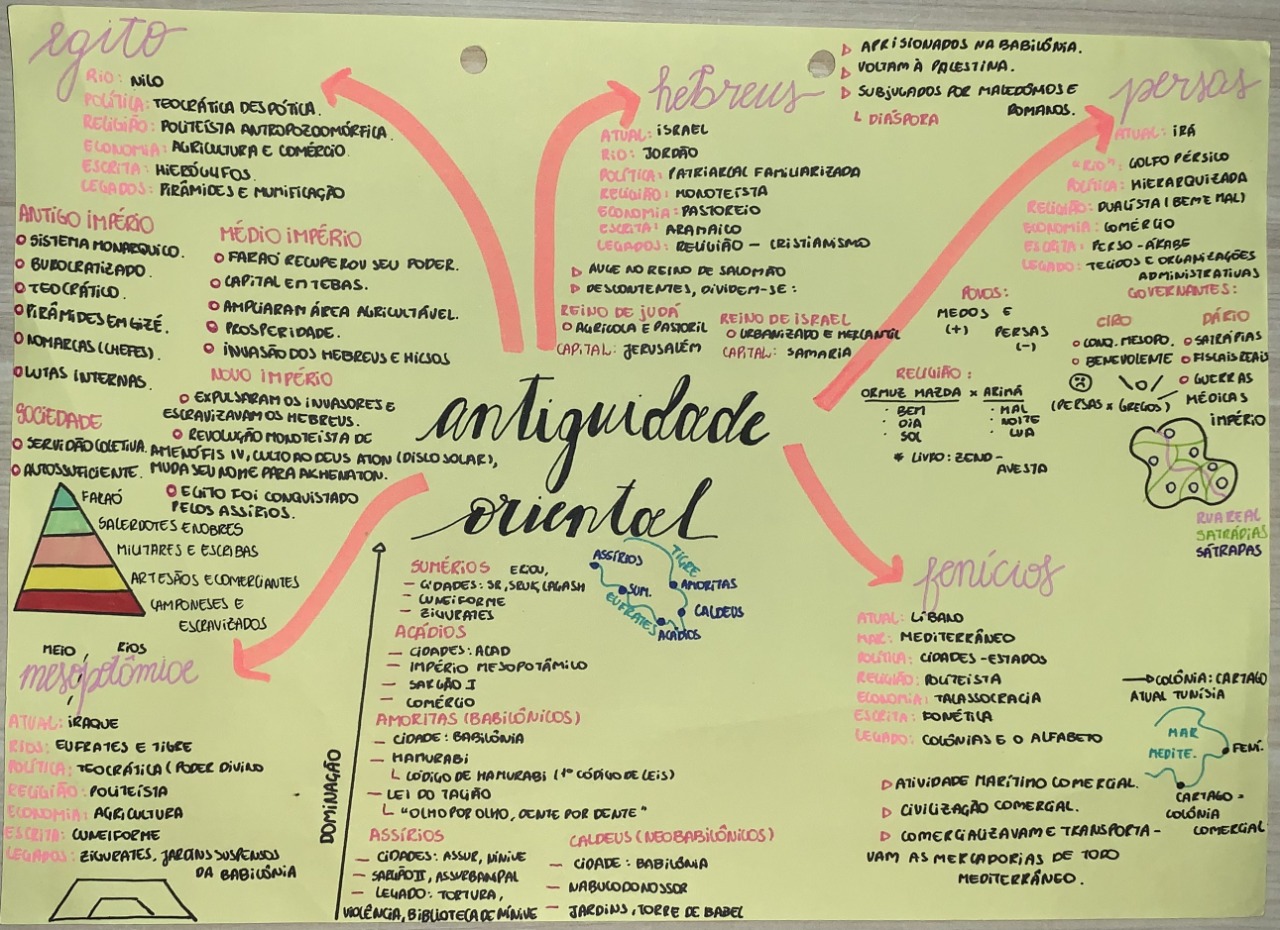 antiguidade
oriental
egito
RIO: NILO
POLÍTICA: TEOCRÁTICA DESPÓTICA.
RELIGIÃO: POLITEÍSTA ANTROPOZOOMÓRFICA.
ECONOMIA: AGRICULTURA E COMÉRCIO.
ESCRITA: HIERÓGLIFOS.
LEGADOS: PIRÂMIDES E MUMIFICAÇÃO
ANTIGO IMPÉRIO
SISTEMA MONARQUICO.
BUROCRATIZADO.
TEOCRÁTICO.
PIRÂMIDES EM GIZÉ.
NOMARCAS (CHEFES).
LUTAS INTERNAS.
MÉDIO IMPÉRIO
FARAÓ RECUPEROU SEU PODER.
CAPITAL EM TEBAS.
AMPLIARAM ÁREA AGRICULTÁVEL.
PROSPERIDADE.
INVASÃO DOS HEBREUS E HICSOS
NOVO IMPÉRIO
EXPULSARAM OS INVASORES E
ESCRAVIZAVAM OS HEBREUS.
REVOLUÇÃO MONOTEÍSTA DE
AMENÓFIS IV, CULTO AO DEUS ATON (DISCO SOLAR),
MUDA SEU NOME PARA AKHENATON.
EGITO FOI CONQUISTADO
PELOS ASSÍRIOS.
SOCIEDADE
SERVIDÃO COLETIVA.
AUTOSSUFICIENTE.
FARAÓ
SACERDOTES E NOBRES
MILITARES E ESCRIBAS
ARTESÃOS E COMERCIANTES
CAMPONESES E
ESCRAVIZADOS
hebreus
ATUAL: ISRAEL
RIO: JORDÃO
POLÍTICA: PATRIARCAL FAMILIARIZADA
RELIGIÃO: MONOTEÍSTA
ECONOMIA: PASTOREIO
ESCRITA: ARAMAICO
LEGADOS: RELIGIÃO - CRISTIANISMO
AUGE NO REINO DE SALOMÃO
DESCONTENTES, DIVIDEM-SE:
REINO DE JUDÁ
AGRÍCOLA E PASTORIL
CAPITAL: JERUSALÉM
REINO DE ISRAEL
URBANIZADO E MERCANTIL
CAPITAL: SAMARIA
APRISIONADOS NA BABILÔNIA.
VOLTAM À PALESTINA.
SUBJUGADOS POR MACEDÔMOS E
ROMANOS.
DIÁSPORA
persas
ATUAL: IRÃ
"RIO": GOLFO PÉRSICO
POLÍTICA: HIERARQUIZADA
RELIGIÃO: DUALÍSTA (BEM E MAL)
ECONOMIA: COMÉRCIO
ESCRITA: PERSO-ÁRABE
LEGADO: TECIDOS E ORGANIZAÇÕES
ADMINISTRATIVAS
POVOS:
MEDOS E
(+)
PERSAS
(-)
GOVERNANTES:
CIRO
CONQ. MESOPO.
BENEVOLENTE
DÁRIO
SATRÁPIAS
FISCAIS REAIS
GUERRAS
MÉDICAS
(PERSAS X GREGOS)
RELIGIÃO:
ORMUZ MAZDA X ARIMÃ
BEM
DIA
SOL
MAL
NOITE
LUA
* LIVRO: ZEND-
AVESTA
IMPÉRIO
RUA REAL
SATRÁPIAS
SÁTRAPAS
MEIO
RIOS
mesopotâmica
ATUAL: IRAQUE
RIOS: EUFRATES E TIGRE
POLÍTICA: TEOCRÁTICA (PODER DIVINO
RELIGIÃO: POLITEÍSTA
ECONOMIA: AGRICULTURA
ESCRITA: CUNEIFORME
LEGADOS: ZIGURATES, JARDINS SUSPENSOS
DA BABILÔNIA
DOMINAÇÃO
SUMÉRIOS ERIDU,
— CIDADES: UR, URUK, LAGASH
— CUNEIFORME
— ZIGURATES
ACÁDIOS
— CIDADES: ACAD
— IMPÉRIO MESOPOTÂMICO
— SARGÃO I
— COMÉRCIO
AMORITAS (BABILÔNICOS)
— CIDADE: BABILÔNIA
— HAMURABI
CÓDIGO DE HAMURABI (1º CÓDIGO DE LEIS)
— LEI DO TAGIÃO
"OLHO POR OLHO, DENTE POR DENTE"
ASSÍRIOS
— CIDADES: ASSUR, NÍNIVE
— SARGÃO II, ASSURBANIPAL
— LEGADO: TORTURA,
VIOLÊNCIA, BIBLIOTECA DE NÍNIVE
CALDEUS (NEOBABILÔNICOS)
— CIDADE: BABILÔNIA
— NABUCODONOSSOR
— JARDINS, TORRE DE BABEL
ASSÍRIOS
TIGRE
SUM.
AMORITAS
EUFRATES
CALDEUS
ACÁDIOS
fenícios
ATUAL: LÍBANO
MAR: MEDITERRÂNEO
POLÍTICA: CIDADES-ESTADOS
RELIGIÃO: POLITEÍSTA
ECONOMIA: TALASSOCRACIA
ESCRITA: FONÉTICA
LEGADO: COLÔNIAS E O ALFABETO
ATIVIDADE MARÍTIMO COMERCIAL.
CIVILIZAÇÃO COMERCIAL.
COMERCIALIZAVAM E TRANSPORTA-
VAM AS MERCADORIAS DE TODO
MEDITERRÂNEO.
COLÔNIA: CARTAGO
ATUAL TUNÍSIA
MAR
MEDITE.
FENÍ.
CARTAGO -
COLÔNIA
COMERCIAL